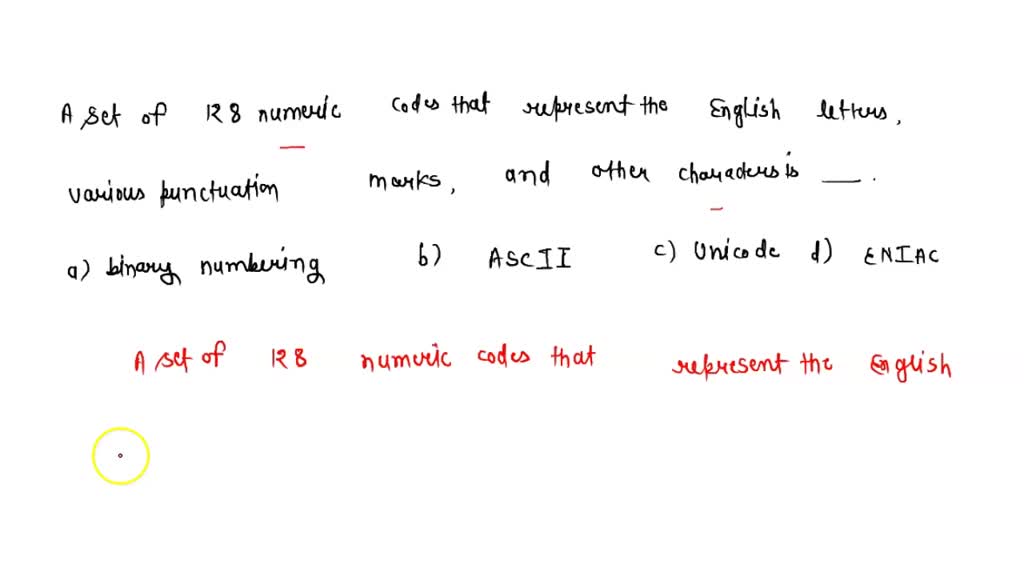 A set of 128 numeric codes that represent the English letters,
various punctuation marks, and other characters is ___.
a) binary numbering b) ASCII c) Unicode d) ENIAC
A set of 128 numeric codes that represent the English